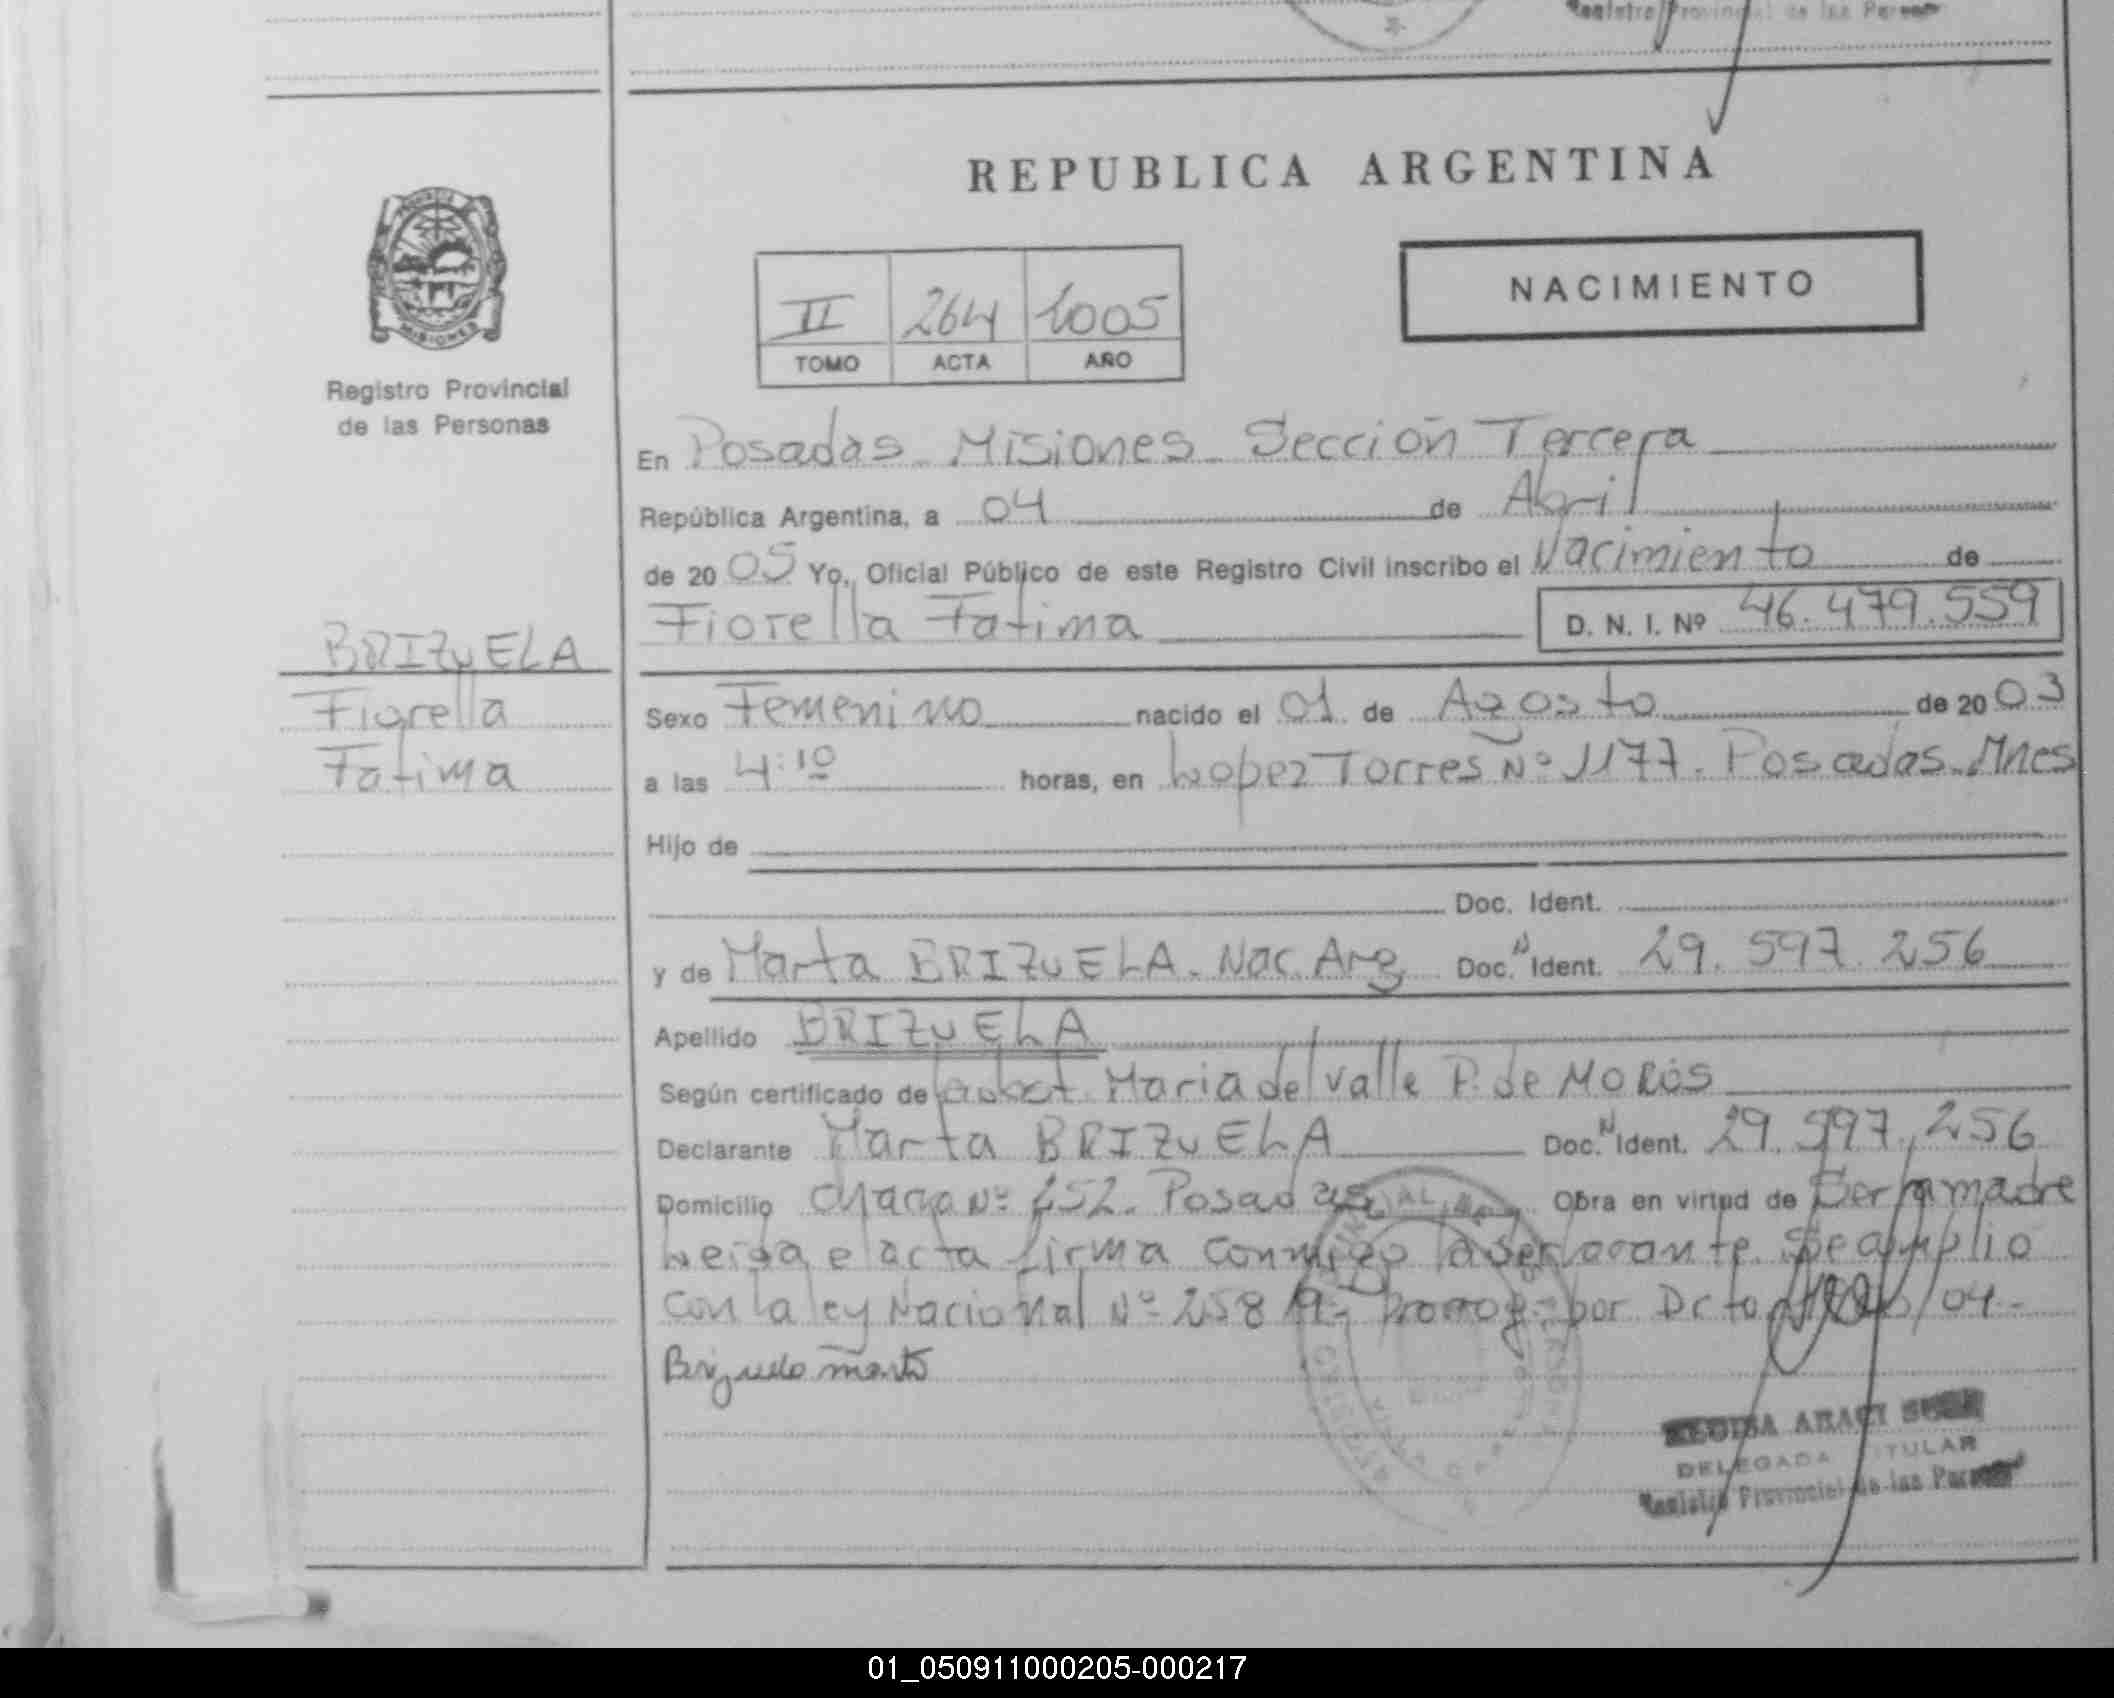 Registro Provincial de las Person
REPUBLICA ARGENTINA
MISIONES
Registro Provincial
de las Personas
NACIMIENTO
II 264 2005
TOMO ACTA AÑO
En Posadas Misiones Sección Tercera
República Argentina, a 04 de Abril
de 20 05 Yo, Oficial Público de este Registro Civil inscribo el Nacimiento de
Fiorella Fatima D. N. I. Nº 46.479.559
BRIZUELA
Fiorella
Fatima
Sexo Femenino nacido el 01 de Agosto de 20 03
a las 4:10 horas, en Lopez Torres Nº 1177. Posadas. Mnes
Hijo de
Doc. Ident.
y de Marta BRIZUELA. Nac. Arg Doc. N Ident. 29.597.256
Apellido BRIZUELA
Según certificado de Maria del Valle P. de MOROS
Declarante Marta BRIZUELA Doc. N Ident. 29.597.256
Domicilio Chacra Nº 252. Posadas Obra en virtud de Ser la madre
Leida el acta firma conmigo la declarante. Se amplio
con la ley Nacional Nº 25819- Prorrog. por Dcto /04-
Brizuela Marta
ARACI
DELEGADA TITULAR
Registro Provincial de las Person
01_050911000205-000217